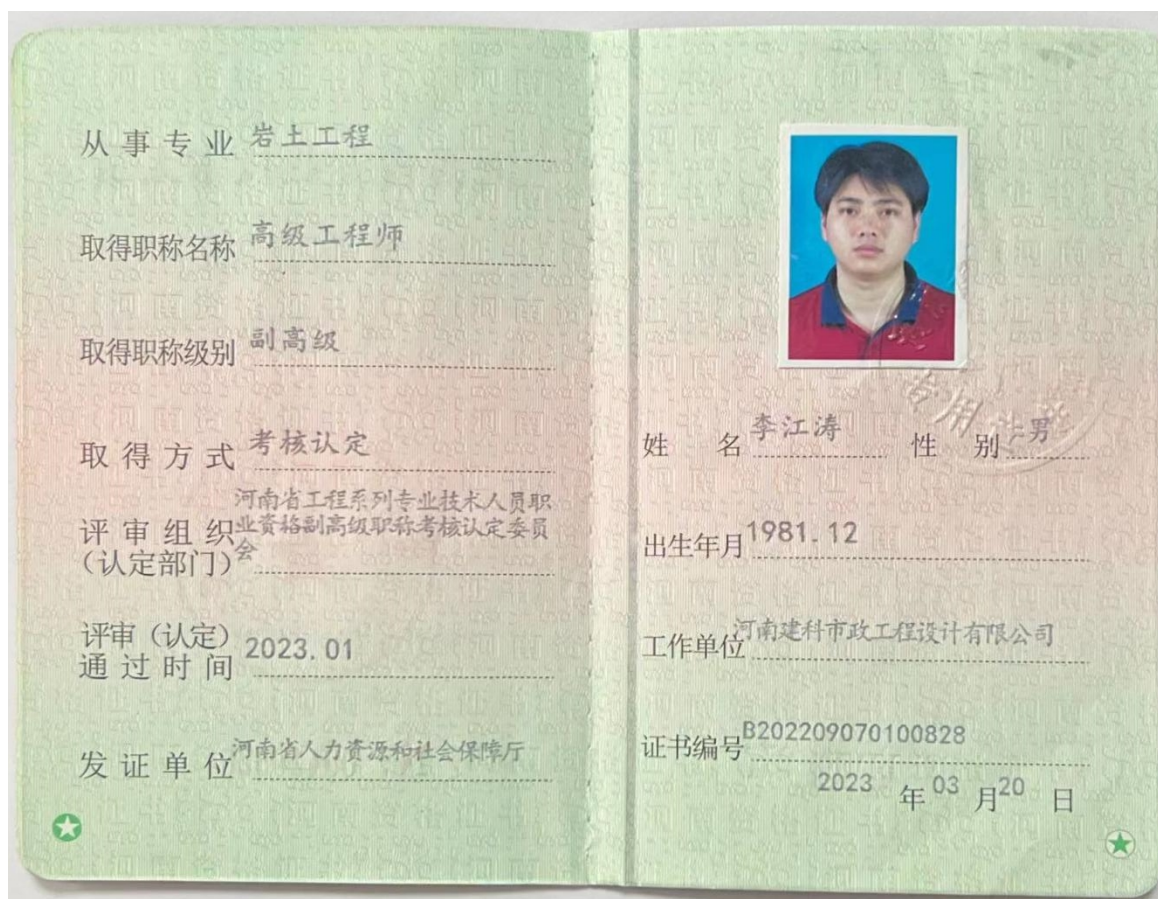 从事专业 岩土工程
取得职称名称 高级工程师
取得职称级别 副高级
取得方式 考核认定
河南省工程系列专业技术人员职
评审组织 业资格副高级职称考核认定委员
(认定部门) 会
评审(认定)
通过时间 2023.01
发证单位 河南省人力资源和社会保障厅
专用章
姓名 李江涛 性别 男
出生年月 1981.12
工作单位 河南建科市政工程设计有限公司
证书编号 B202209070100828
2023 年 03 月 20 日